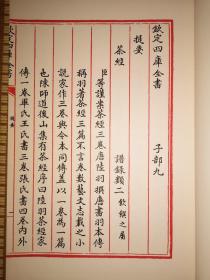 欽定四庫全書　　子部九
提要　　譜錄類二飲饌之屬
茶經
臣等謹案茶經三卷唐陸羽撰唐書羽本傳
稱羽著茶經三篇不言卷數藝文志載之小
說家作三卷與今本同傳盖以一卷為一篇
也陳師道後山集有茶經序曰陸羽茶經家
傳一卷畢氏王氏書三卷張氏書四卷内外